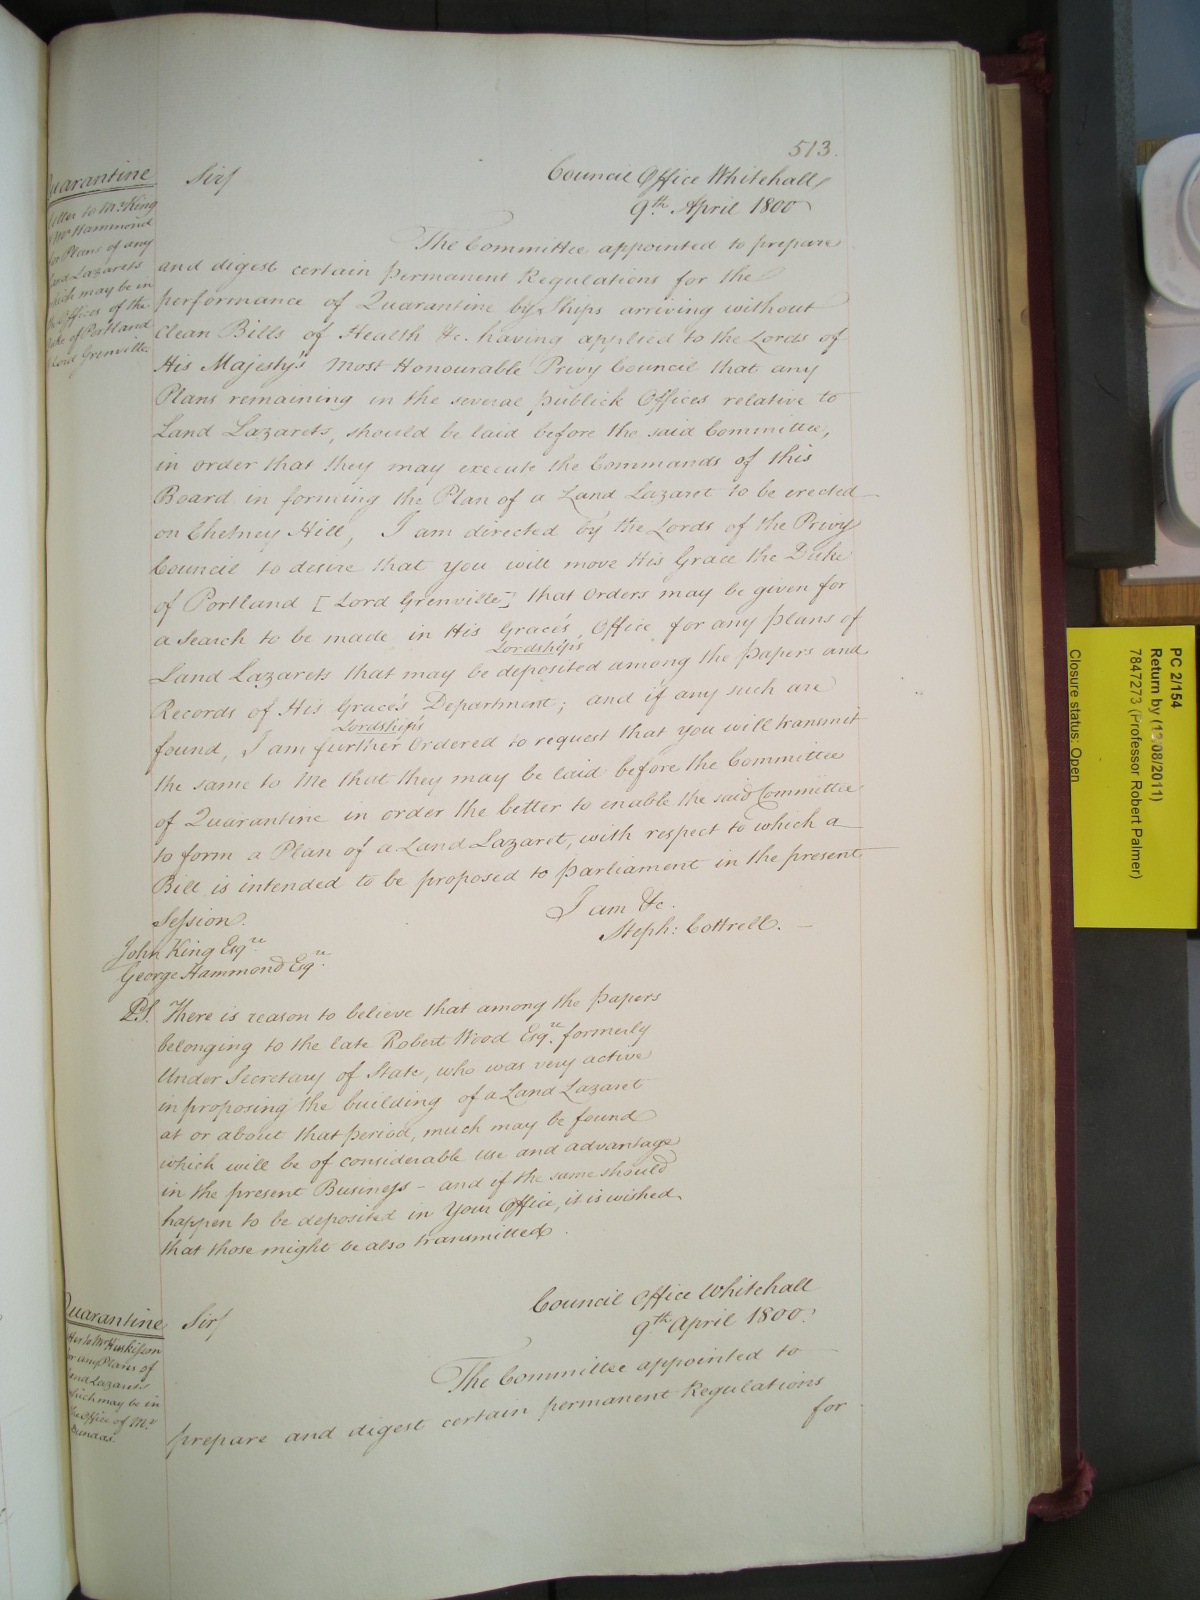 513.
Quarantine
Letter to Mr. King
& Mr Hammond
for Plans of any
Land Lazarets
which may be in
the Offices of the
Duke of Portland
& Lord Grenville
Sir/
Council Office Whitehall,
9th April 1800
The Committee appointed to prepare
and digest certain permanent Regulations for the
performance of Quarantine by Ships arriving without
Clean Bills of Health &c. having applied to the Lords of
His Majesty's Most Honourable Privy Council that any
Plans remaining in the several publick Offices relative to
Land Lazarets, should be laid before the said Committee,
in order that they may execute the Commands of this
Board in forming the Plan of a Land Lazaret to be erected
on Chetney Hill, I am directed by the Lords of the Privy
Council to desire that you will move His Grace the Duke
of Portland [Lord Grenville] that Orders may be given for
a Search to be made in His Grace's Office for any plans of
Lordships
Land Lazarets that may be deposited among the papers and
Records of His Grace's Department; and if any such are
Lordship's
found, I am further Ordered to request that you will transmit
the same to Me that they may be laid before the Committee
of Quarantine in order the better to enable the said Committee
to form a Plan of a Land Lazaret, with respect to which a
Bill is intended to be proposed to parliament in the present
Session.
I am &c.
Steph: Cottrell.
John King Esqre
George Hammond Esqre.
P.S. There is reason to believe that among the papers
belonging to the late Robert Wood Esqre. formerly
Under Secretary of State, who was very active
in proposing the building of a Land Lazaret
at or about that period, much may be found
which will be of considerable use and advantage
in the present Business - and if the same should
happen to be deposited in Your Office, it is wished
that those might be also transmitted.
Quarantine
Letter to Mr Huskisson
for any Plans of
Land Lazarets
which may be in
the Office of Mr.
Dundas.
Sir/
Council Office Whitehall
9th April 1800.
The Committee appointed to
prepare and digest certain permanent Regulations
for
PC 2/154
Return by (1 /08/2011)
7847273 (Professor Robert Palmer)
Closure status: Open